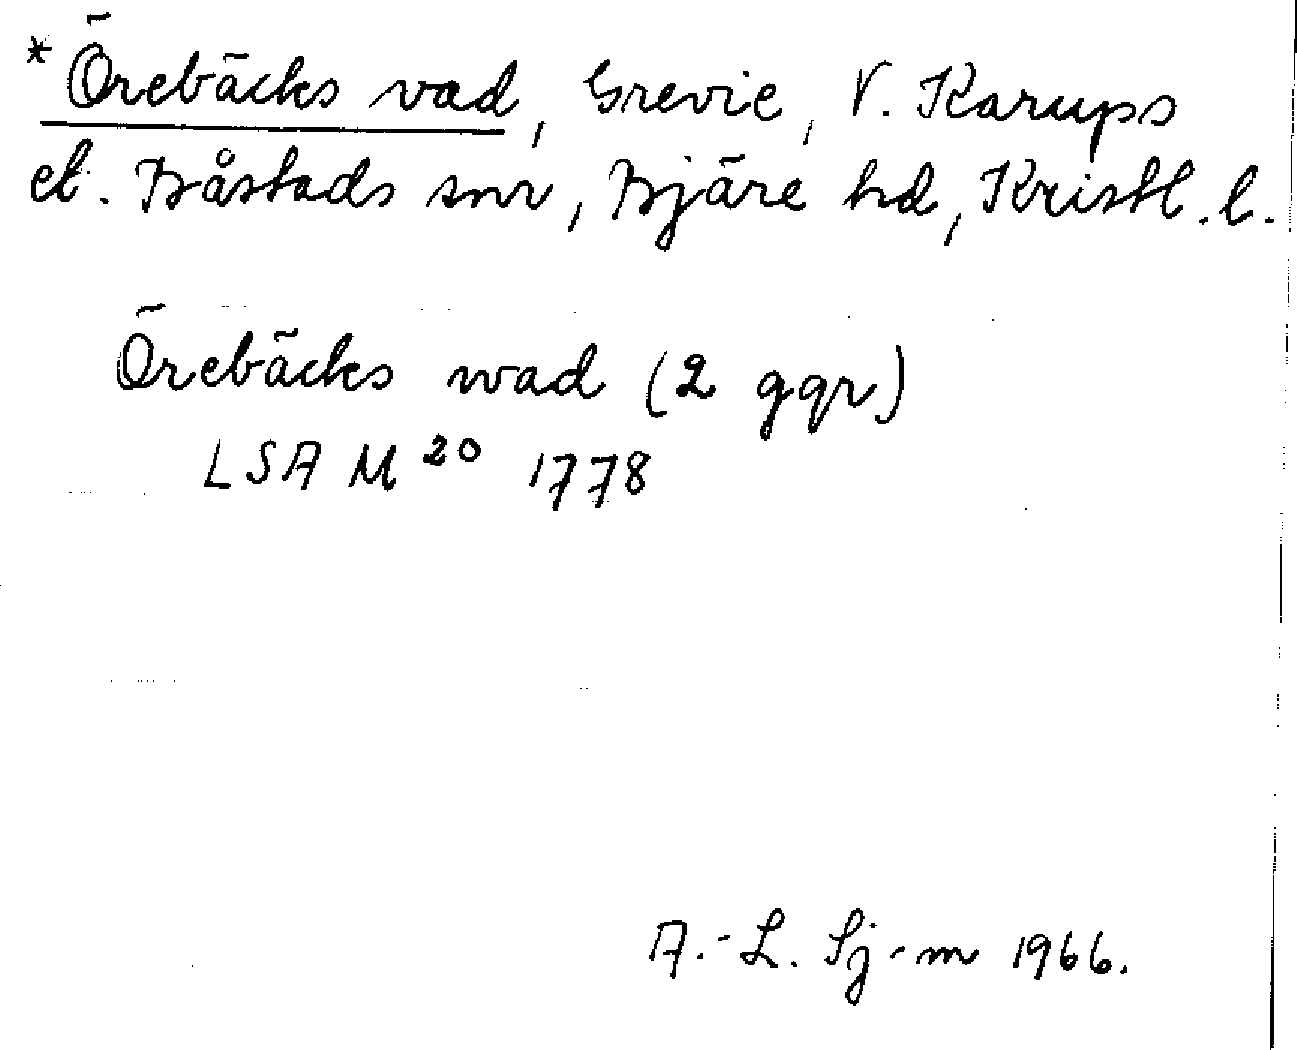 *Örebäcks vad, Grevie, V. Karups
el. Båstads snr, Bjäre hd, Kristl. l.
Örebäcks wad (2 ggr)
LSA M 20 1778
A.-L. Sj-m 1966.